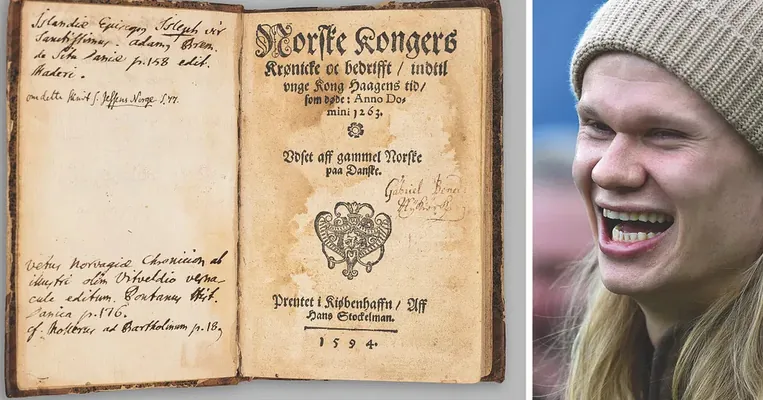 Islandiæ Episcop. Isleph vir
Sanctissimus. adam. Brem.
de Situ Daniæ p. 158 edit.
Maderi.
om dette skrivt s. Jessens Norge S. 47.
vetus Norvagiæ Chronicion ab
illustri olim Vitveldio verna-
cule editum. Pontanus Hist.
Danica p. 176.
cf. ad Bartholinum p. 18
Norske Kongers
Krønicke oc bedrifft / indtil
vnge Kong Haagens tid /
som døde: Anno Do-
mini 1263.
Vdset aff gammel Norske
paa Danske.
Gabriel
Prentet i Kiøbenhaffn / Aff
Hans Stockelman.
1594.